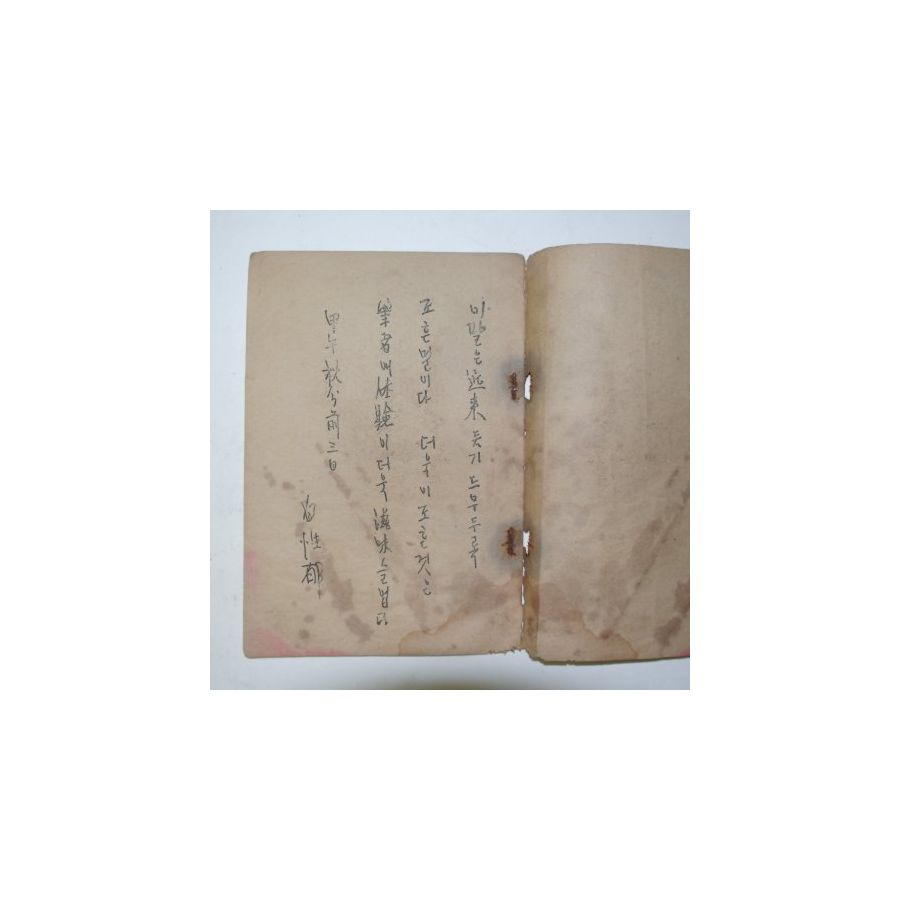 이말은 近來 듯기 드무두록
조흔말이다 더욱이 조흔것은
筆者에 体驗이 더욱 滋味스럽다
甲午秋分前三日
白性郁